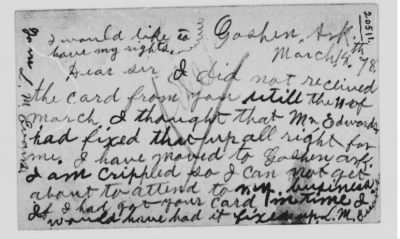 20511
I would like to
have my rights.
Goshen, Ark.
March 14th, 78.
Dear sir I did not received
the card from you utill the 11 of
march I thought that Mr Edwards
had fixed that up all right for
me. I have moved to Goshen Ark.
I am crippled so I can not get
about to attend to my business
If I had got your card in time I
would have had it fixed up L. M. E
yours L. M. Edwards